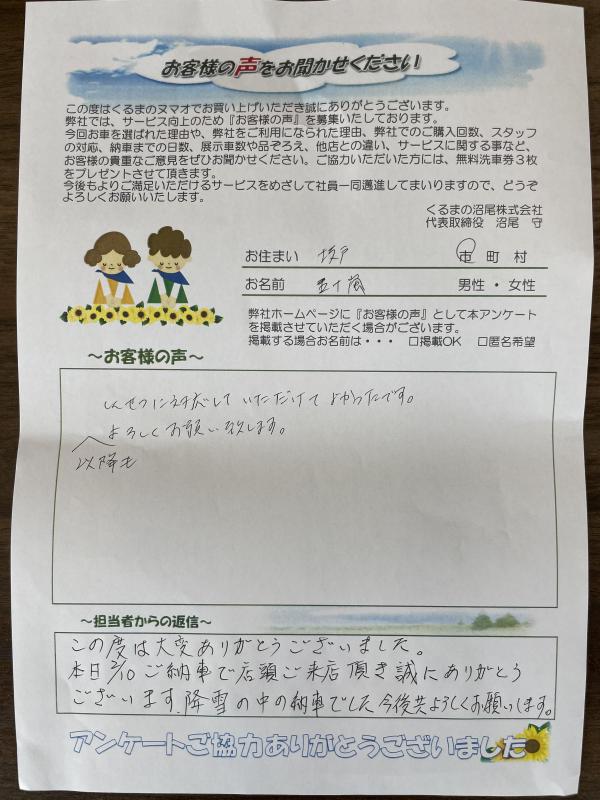 お客様の声をお聞かせください
この度はくるまのヌマオでお買い上げいただき誠にありがとうございます。
弊社では、サービス向上のため『お客様の声』を募集いたしております。
今回お車を選ばれた理由や、弊社をご利用になられた理由、弊社でのご購入回数、スタッフ
の対応、納車までの日数、展示車数や品ぞろえ、他店との違い、サービスに関する事など、
お客様の貴重なご意見をぜひお聞かせください。ご協力いただいた方には、無料洗車券３枚
をプレゼントさせて頂きます。
今後もよりご満足いただけるサービスをめざして社員一同邁進してまいりますので、どうぞ
よろしくお願いいたします。
くるまの沼尾株式会社
代表取締役 沼尾 守
お住まい 坂戸 市 町 村
お名前 五十嵐 男性・女性
弊社ホームページに『お客様の声』として本アンケート
を掲載させていただく場合がございます。
掲載する場合お名前は・・・ □掲載OK □匿名希望
～お客様の声～
しんせつに対応して いただけて よかったです。
よろしくお願い致します。
以降も
～担当者からの返信～
この度は大変ありがとうございました。
本日2/10 ご納車で店頭ご来店頂き誠にありがとう
ございます.降雪の中の納車でした今後共よろしくお願いします。
アンケートご協力ありがとうございました